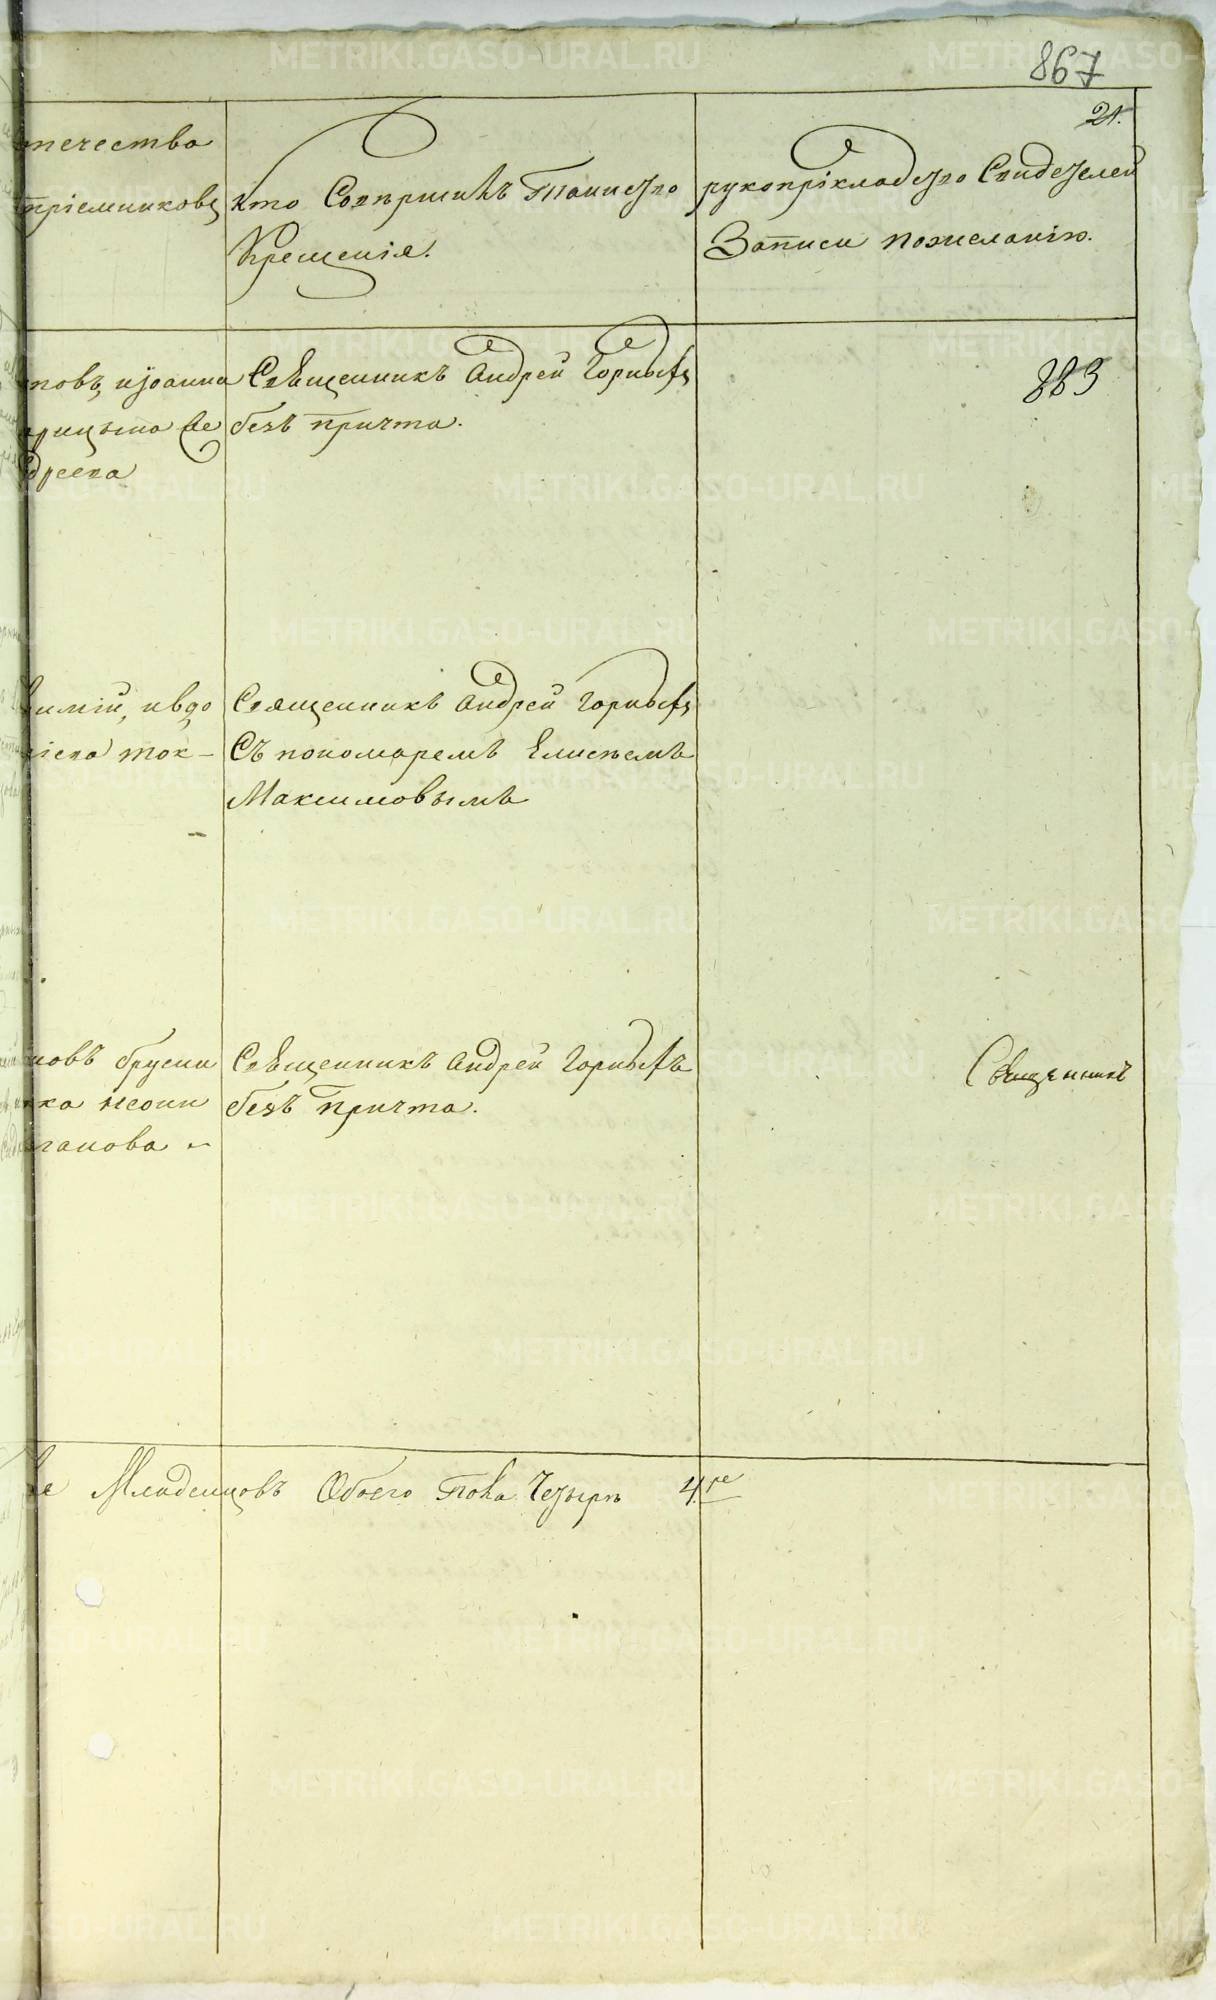 867
21.
отечество
пріемниковъ
кто Совершилъ Таинство
Крещенія.
рукоприкладство Свидетелей
Записи пожеланію.
повъ, иjоанна
Священникъ Андрей Горныхъ
безъ причта.
883
имій, ивдо
ток-
Священникъ Андрей Горныхъ
Съ пономаремъ Елисъемъ
Максимовымъ
новъ брусни
ганова
Священникъ Андрей Горныхъ
безъ Причта.
Священникъ
Младенцовъ Обоего Пола Четыри 4ре
METRIKI.GASO-URAL.RU